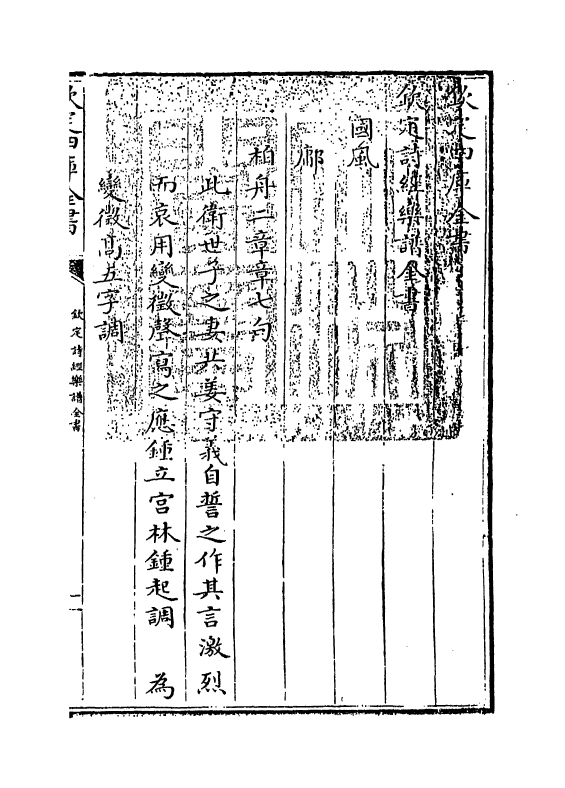 欽定四庫全書
欽定詩經樂譜全書
國風
鄘
柏舟二章章七句
此衛世子之妻共姜守義自誓之作其言激烈
而哀用變徵聲寫之應鍾立宮林鍾起調 為
變徵高五字調
欽定四庫全書
欽定詩經樂譜全書
一